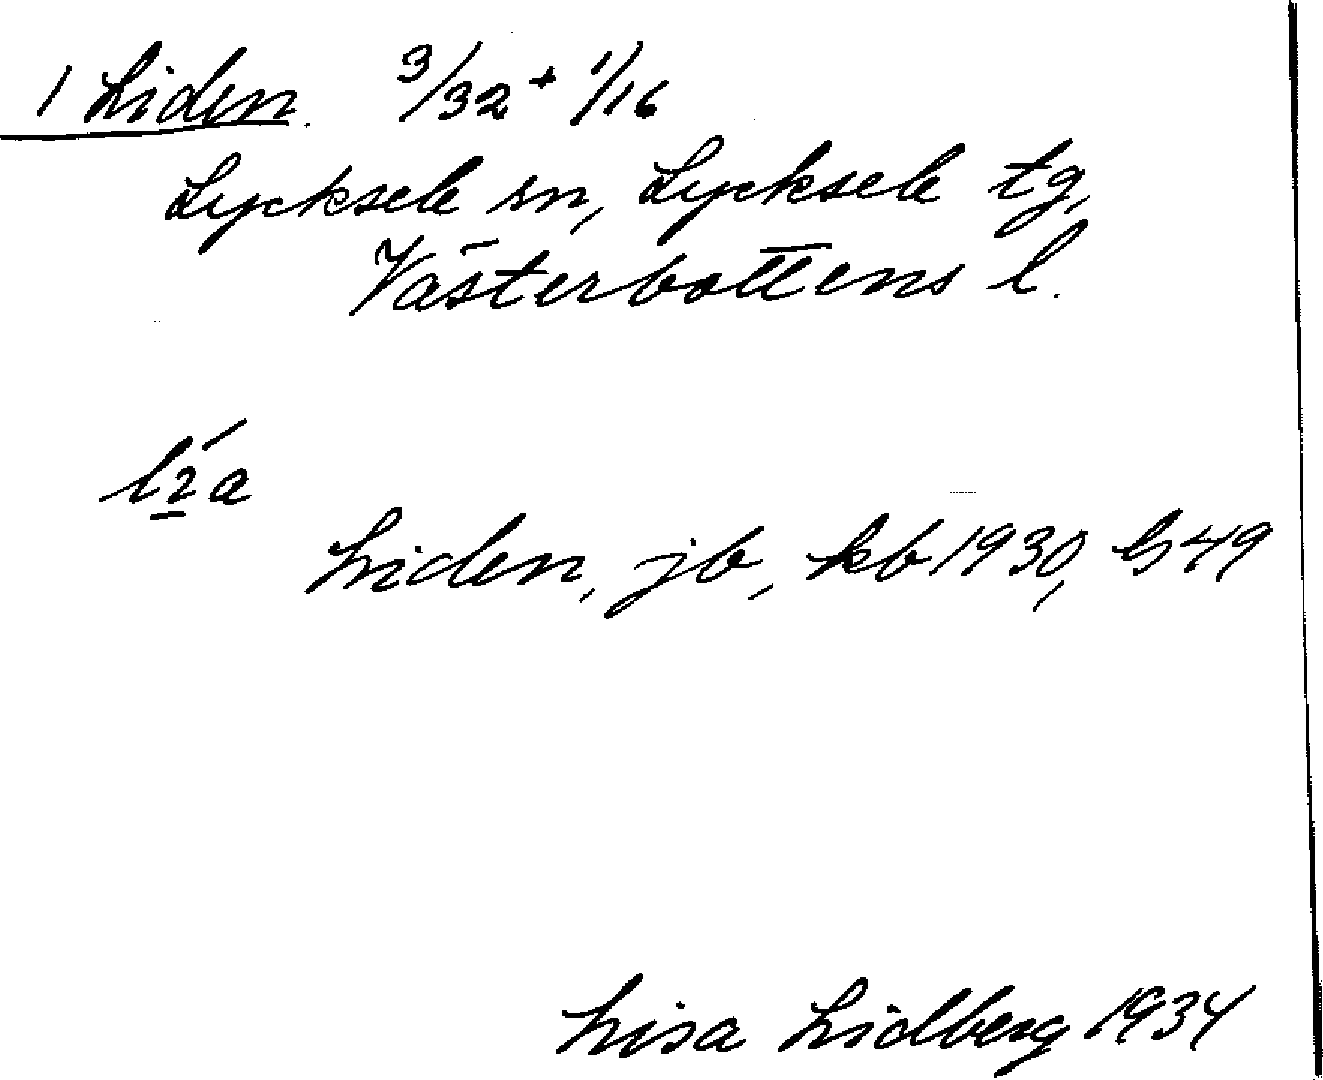 1 Liden. 3/32 + 1/16
Lycksele sn, Lycksele tg,
Västerbottens l.
Liden, jb, kb 1930, 49
Lisa Lidberg 1934